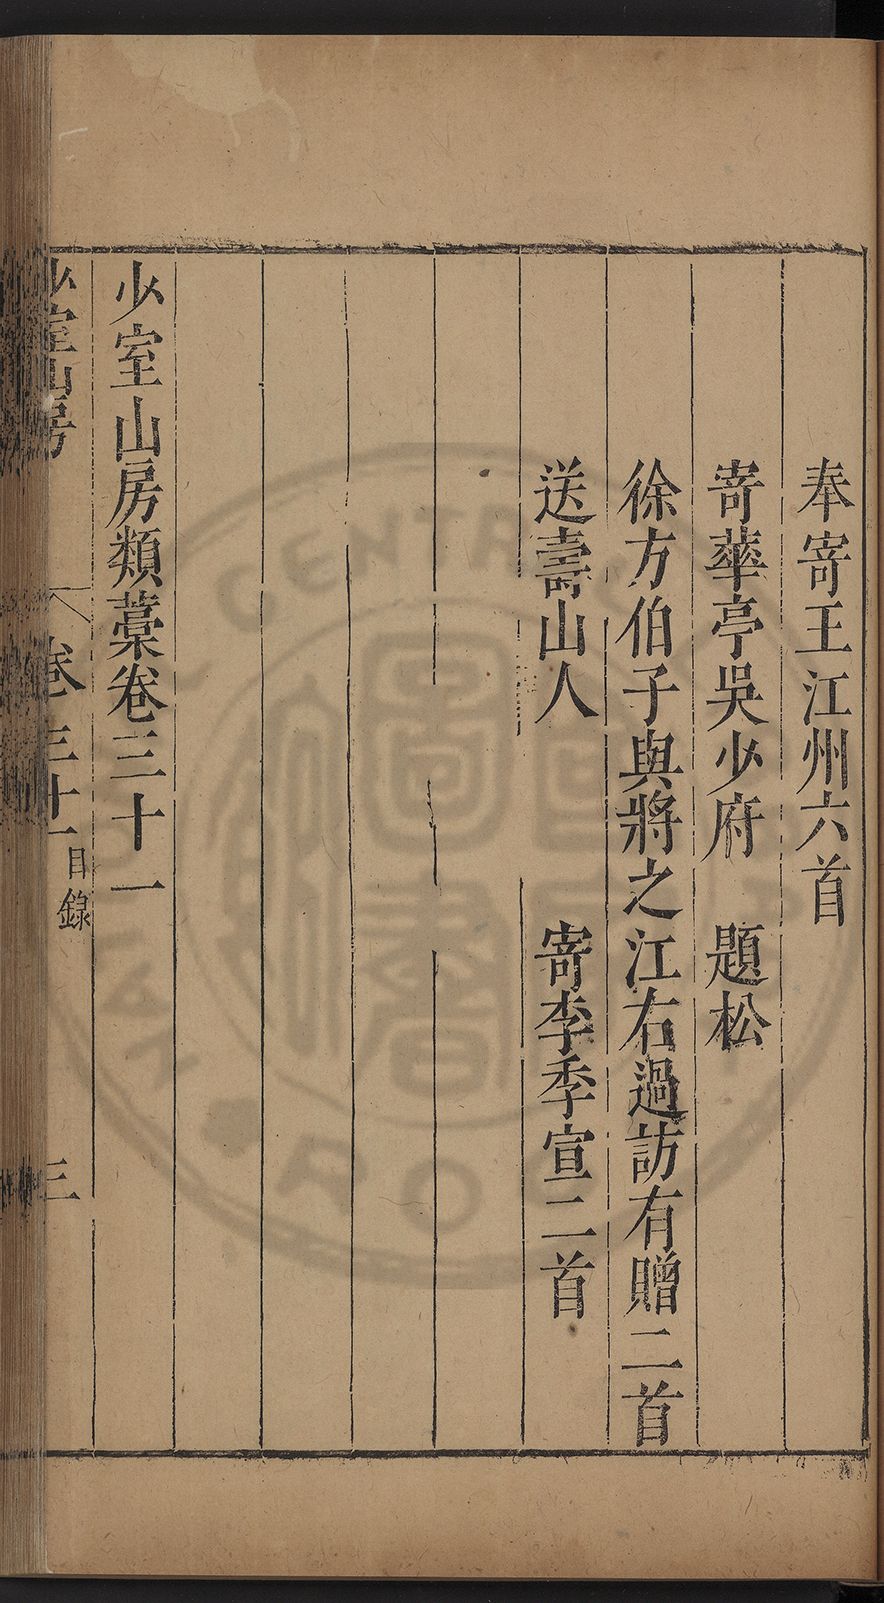 奉寄王江州六首
寄華亭吳少府　題松
徐方伯子與將之江右過訪有贈二首
送壽山人　寄李季宣二首
少室山房類藁卷三十一
少室山房　卷三十一目錄　三